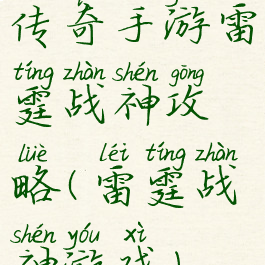 传奇手游雷
tíng zhàn shén gōng
霆战神攻
lüè léi tíng zhàn
略(雷霆战
shén yóu xì
神游戏)